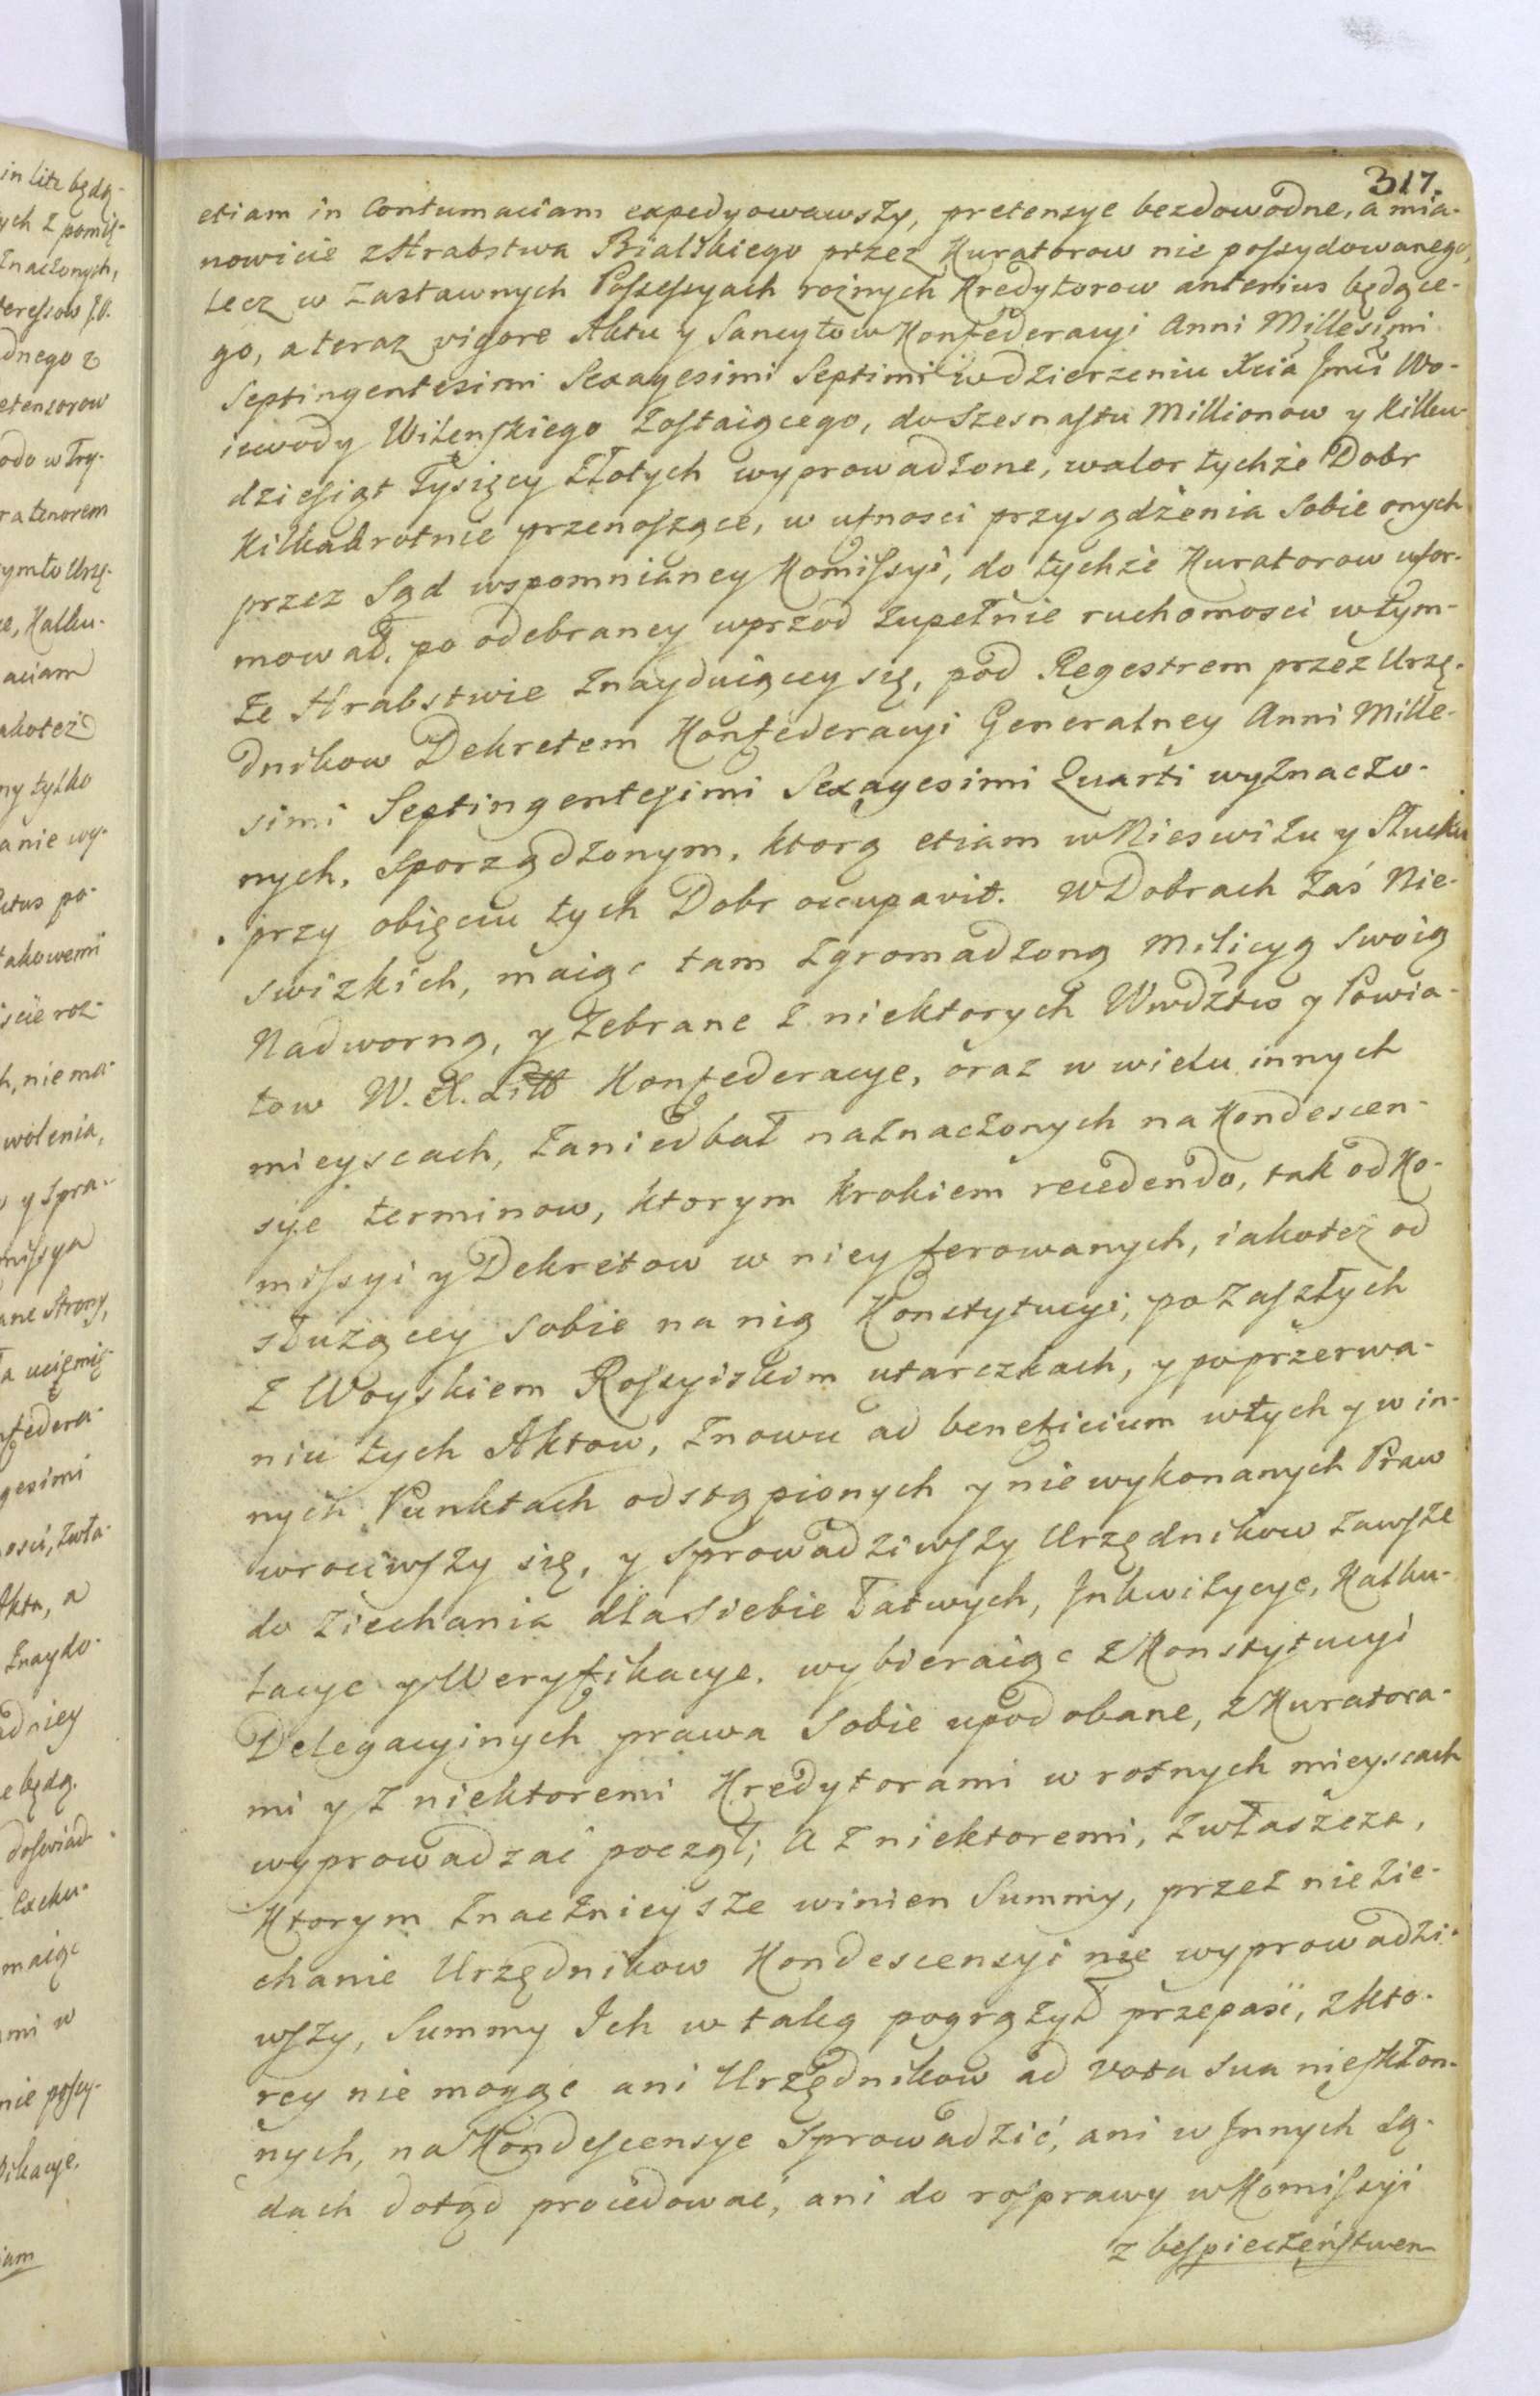 317.
etiam in Contumaciam expedyowawszy, pretensye bezdowodne, a mia-
nowicie z Hrabstwa Bialskiego przez Kuratorow nie possydowanego,
lecz w Zastawnych Possessyach rożnych Kredytorow anterius będące-
go, a teraz vigore Aktu y Sancytow Konfederacyi Anni Millesimi
Septingentesimi Sexagesimi Septimi w dzierżeniu Xcia Jmci Wo-
iewody Wilenskiego Zostaiącego, do Szesnastu Millionow y Kilku-
dziesiąt Tysięcy Złotych wyprowadzone, walor tychże Dobr
Kilkakrotnie przenoszące, w ufnosci przysądzenia Sobie onych
przez Sąd wspomnianey Komissyi, do tychże Kuratorow ufor-
mował, po odebraney wprzod zupełnie ruchomosci w tym-
że Hrabstwie Znayduiącey się, pod Regestrem przez Urzę-
dnikow Dekretem Konfederacyi Generalney Anni Mille-
simi Septingentesimi Sexagesimi Quarti wyznaczo-
nych, Sporządzonym, ktorą etiam w Nieswiżu y Słucku
przy obięciu tych Dobr occupavit. W Dobrach Zaś Nie-
swizkich, maiąc tam Zgromadzoną Milicyą Swoią
Nadworną, y Zebrane z niektorych Wwdztw y Powia-
tow W. X. Litt Konfederacye, oraz w wielu innych
mieyscach, Zaniedbał naznaczonych na Kondescen-
sye terminow, ktorym krokiem recedendo, tak od Ko-
missyi y Dekretow w niey ferowanych, iakoteż od
służącey Sobie na nią Konstytucyi, po Zaszłych
z Woyskiem Rossyiskim utarczkach, y po przerwa-
niu tych Aktow, Znowu ad beneficium w tych y w in-
nych Punktach odstąpionych y nie wykonanych Praw
wrociwszy się, y Sprowadziwszy Urzędnikow Zawsze
do Ziechania dla Siebie Łatwych, Jnkwizycye, Kalku-
lacye y Weryfikacye, wybieraiąc z Konstytucyi
Delegacyinych prawa Sobie upodobane, z Kuratora-
mi y z niektoremi Kredytorami w rożnych mieyscach
wyprowadzać począł; A z niektoremi, Zwłaszcza,
Ktorym Znacznieysze winien Summy, przez nie Zie-
chanie Urzędnikow Kondescensyi nie wyprowadzi-
wszy, Summy Ich w taką pogrążył przepaść, z kto-
rey nie mogąc ani Urzędnikow ad vota sua niesktłon-
nych, na Kondescensye Sprowadzić, ani w Jnnych Są-
dach dotąd procedować, ani do rosprawy w Komissyi
z bespieczeństwem
in lite będą-
Znaczonych,
dnego z
etensorow
odo w Try-
ratenorem
ymto Urzę-
e, Kalku-
aciam
akoteż
ny tylko
anie wy-
ctus po-
takowemi
iscie roz-
h, nie ma-
wolenia,
y Spra-
missya
ane Strony,
a uciemię-
nfedera-
gesimi
osci, Zwła-
Akta, a
Znaydo-
adniey
e będą.
doswiad-
Exeku-
maiąc
ami w
nie possy-
fikacye.
iam